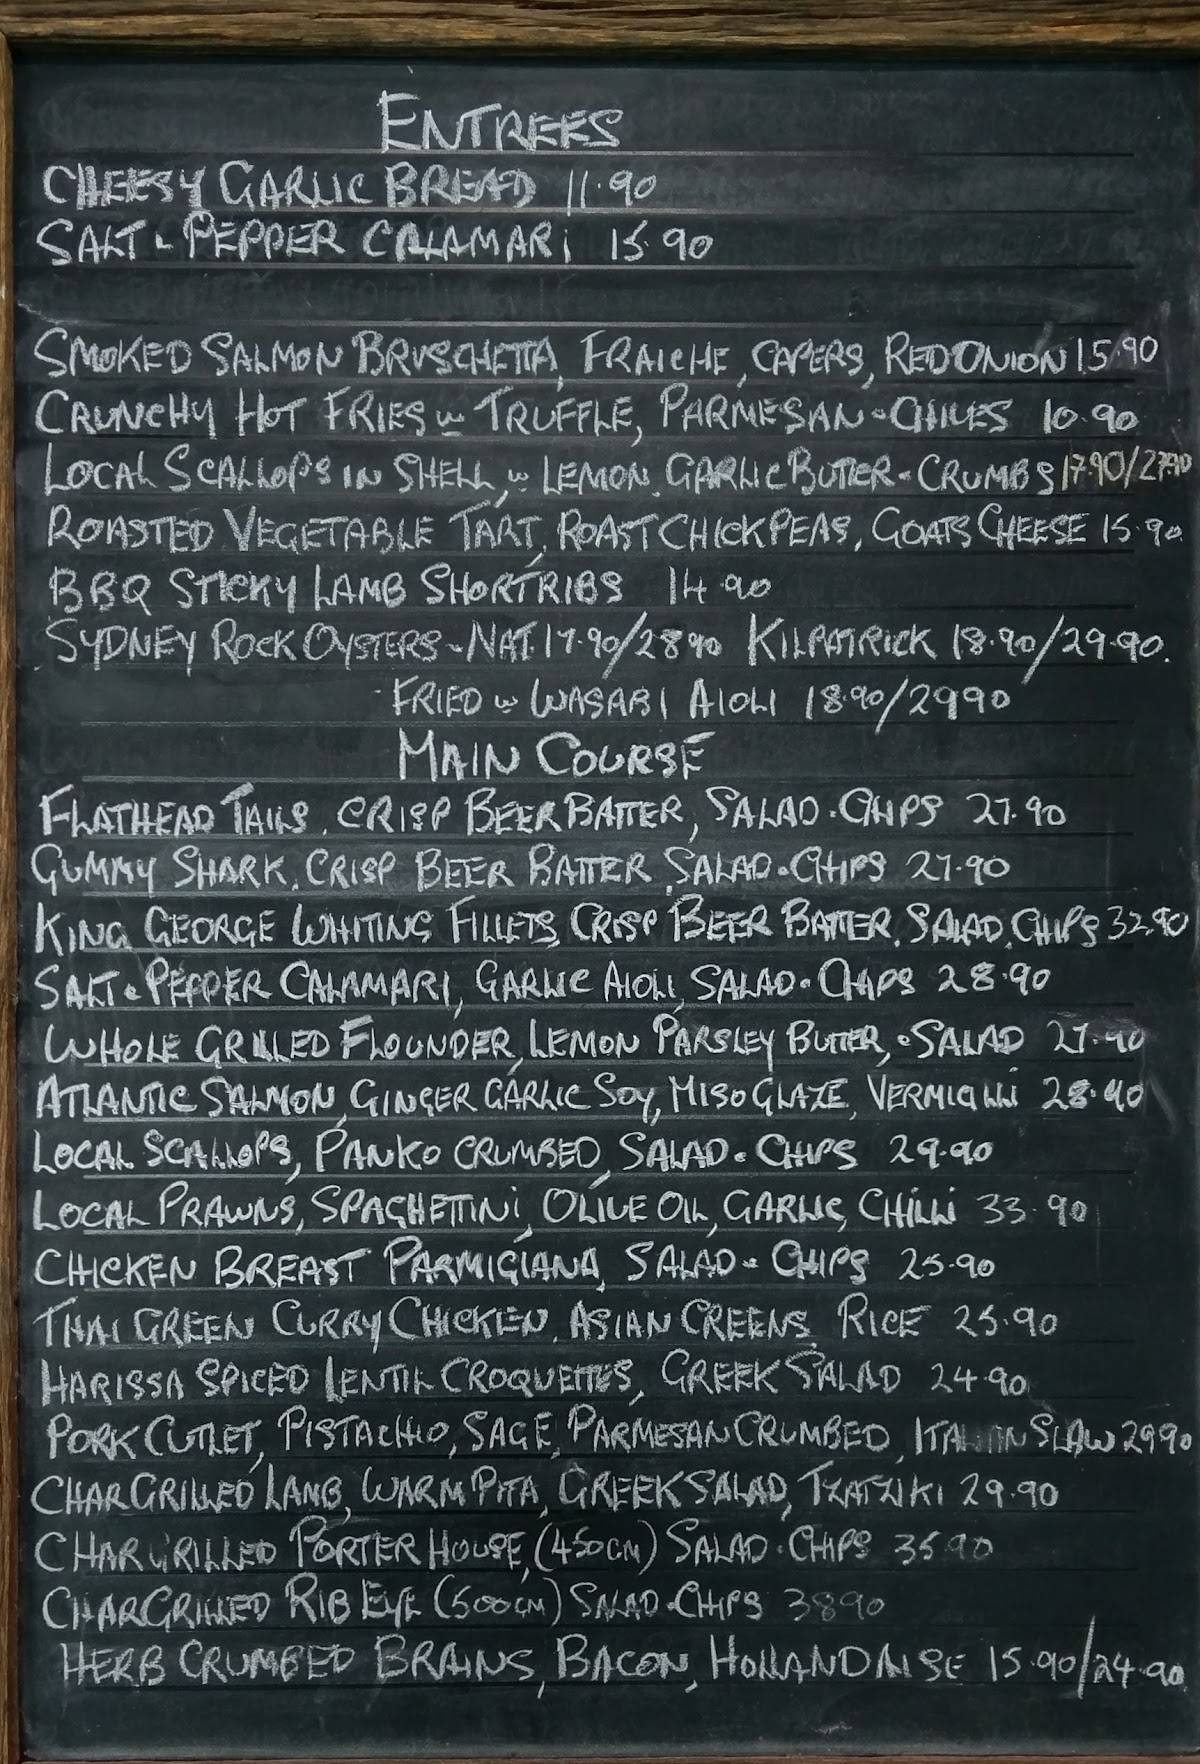 ENTREES
CHEESY GARLIC BREAD 11.90
SALT & PEPPER CALAMARi 15.90
SMOKED SALMON BRUSCHETTA, FRAICHE, CAPERS, RED ONION 15.90
CRUNCHY HOT FRIES w TRUFFLE, PARMESAN & CHIVES 10.90
LOCAL SCALLOPS IN SHELL, w LEMON. GARLIC BUTTER & CRUMBS 17.90/27.90
ROASTED VEGETABLE TART, ROAST CHICKPEAS, GOATS CHEESE 15.90
BBQ STICKY LAMB SHORTRIBS 14.90
SYDNEY ROCK OYSTERS - NAT. 17.90/28.90 KILPATRICK 18.90/29.90.
FRIED w WASABI AIOLI 18.90/29 90
MAIN COURSE
FLATHEAD TAILS, CRISP BEER BATTER, SALAD & CHIPS 27.90
GUMMY SHARK, CRISP BEER BATTER, SALAD & CHIPS 27.90
KING GEORGE WHITING FILLETS, CRISP BEER BATTER, SALAD, CHIPS 32.90
SALT & PEPPER CALAMARI, GARLIC AIOLI, SALAD & CHIPS 28.90
WHOLE GRILLED FLOUNDER, LEMON PARSLEY BUTTER, & SALAD 27.90
ATLANTIC SALMON, GINGER GARLIC SOY, MISO GLAZE, VERMICILLI 28.90
LOCAL SCALLOPS, PANKO CRUMBED, SALAD & CHIPS 29.90
LOCAL PRAWNS, SPAGHETTINI, OLIVE OIL, GARLIC, CHILLI 33.90
CHICKEN BREAST PARMIGIANA, SALAD & CHIPS 25.90
THAI GREEN CURRY CHICKEN, ASIAN GREENS, RICE 25.90
HARISSA SPICED LENTIL CROQUETTES, GREEK SALAD 24.90
PORK CUTLET, PISTACHIO, SAGE, PARMESAN CRUMBED, ITALIAN SLAW 29 90
CHARGRILLED LAMB, WARM PITA, GREEK SALAD, TZATZIKI 29.90
CHARGRILLED PORTER HOUSE, (450GM) SALAD & CHIPS 35.90
CHARGRILLED RIB EYE (500GM) SALAD & CHIPS 38 90
HERB CRUMBED BRAINS, BACON, HOLLANDAISE 15.90/24.90